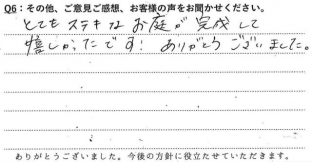 Q6：その他、ご意見ご感想、お客様の声をお聞かせください。
とてもステキなお庭が完成して
嬉しかったです！ありがとうございました。
ありがとうございました。今後の方針に役立たせていただきます。